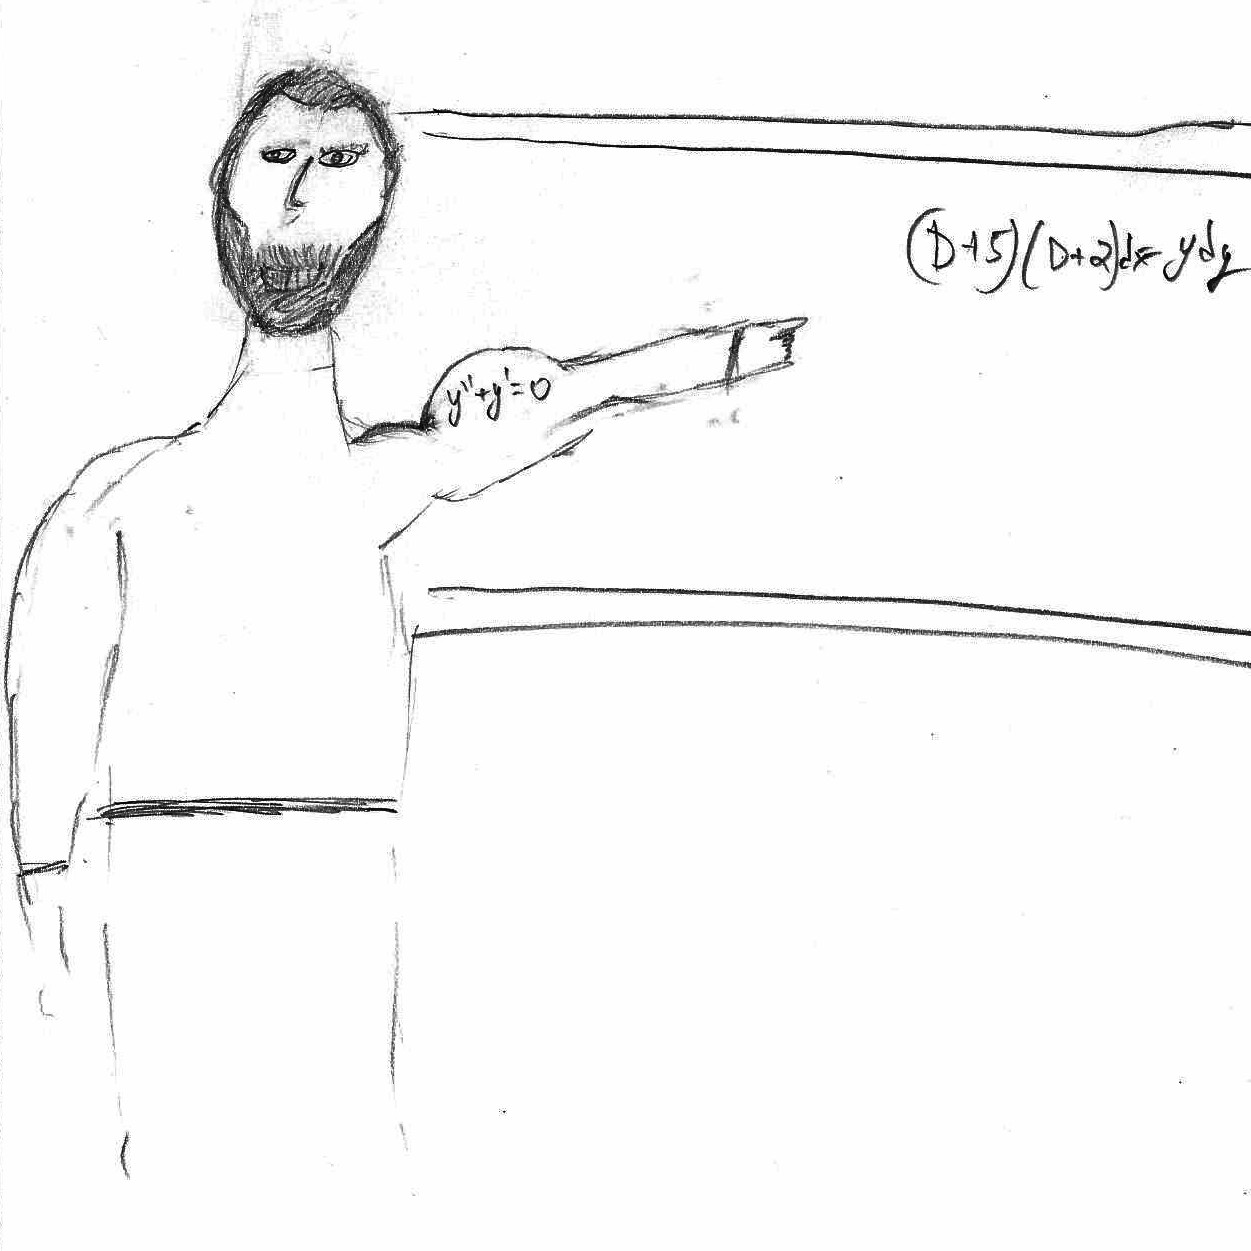 (D+5)(D+2)dx=ydy
y''+y'=0